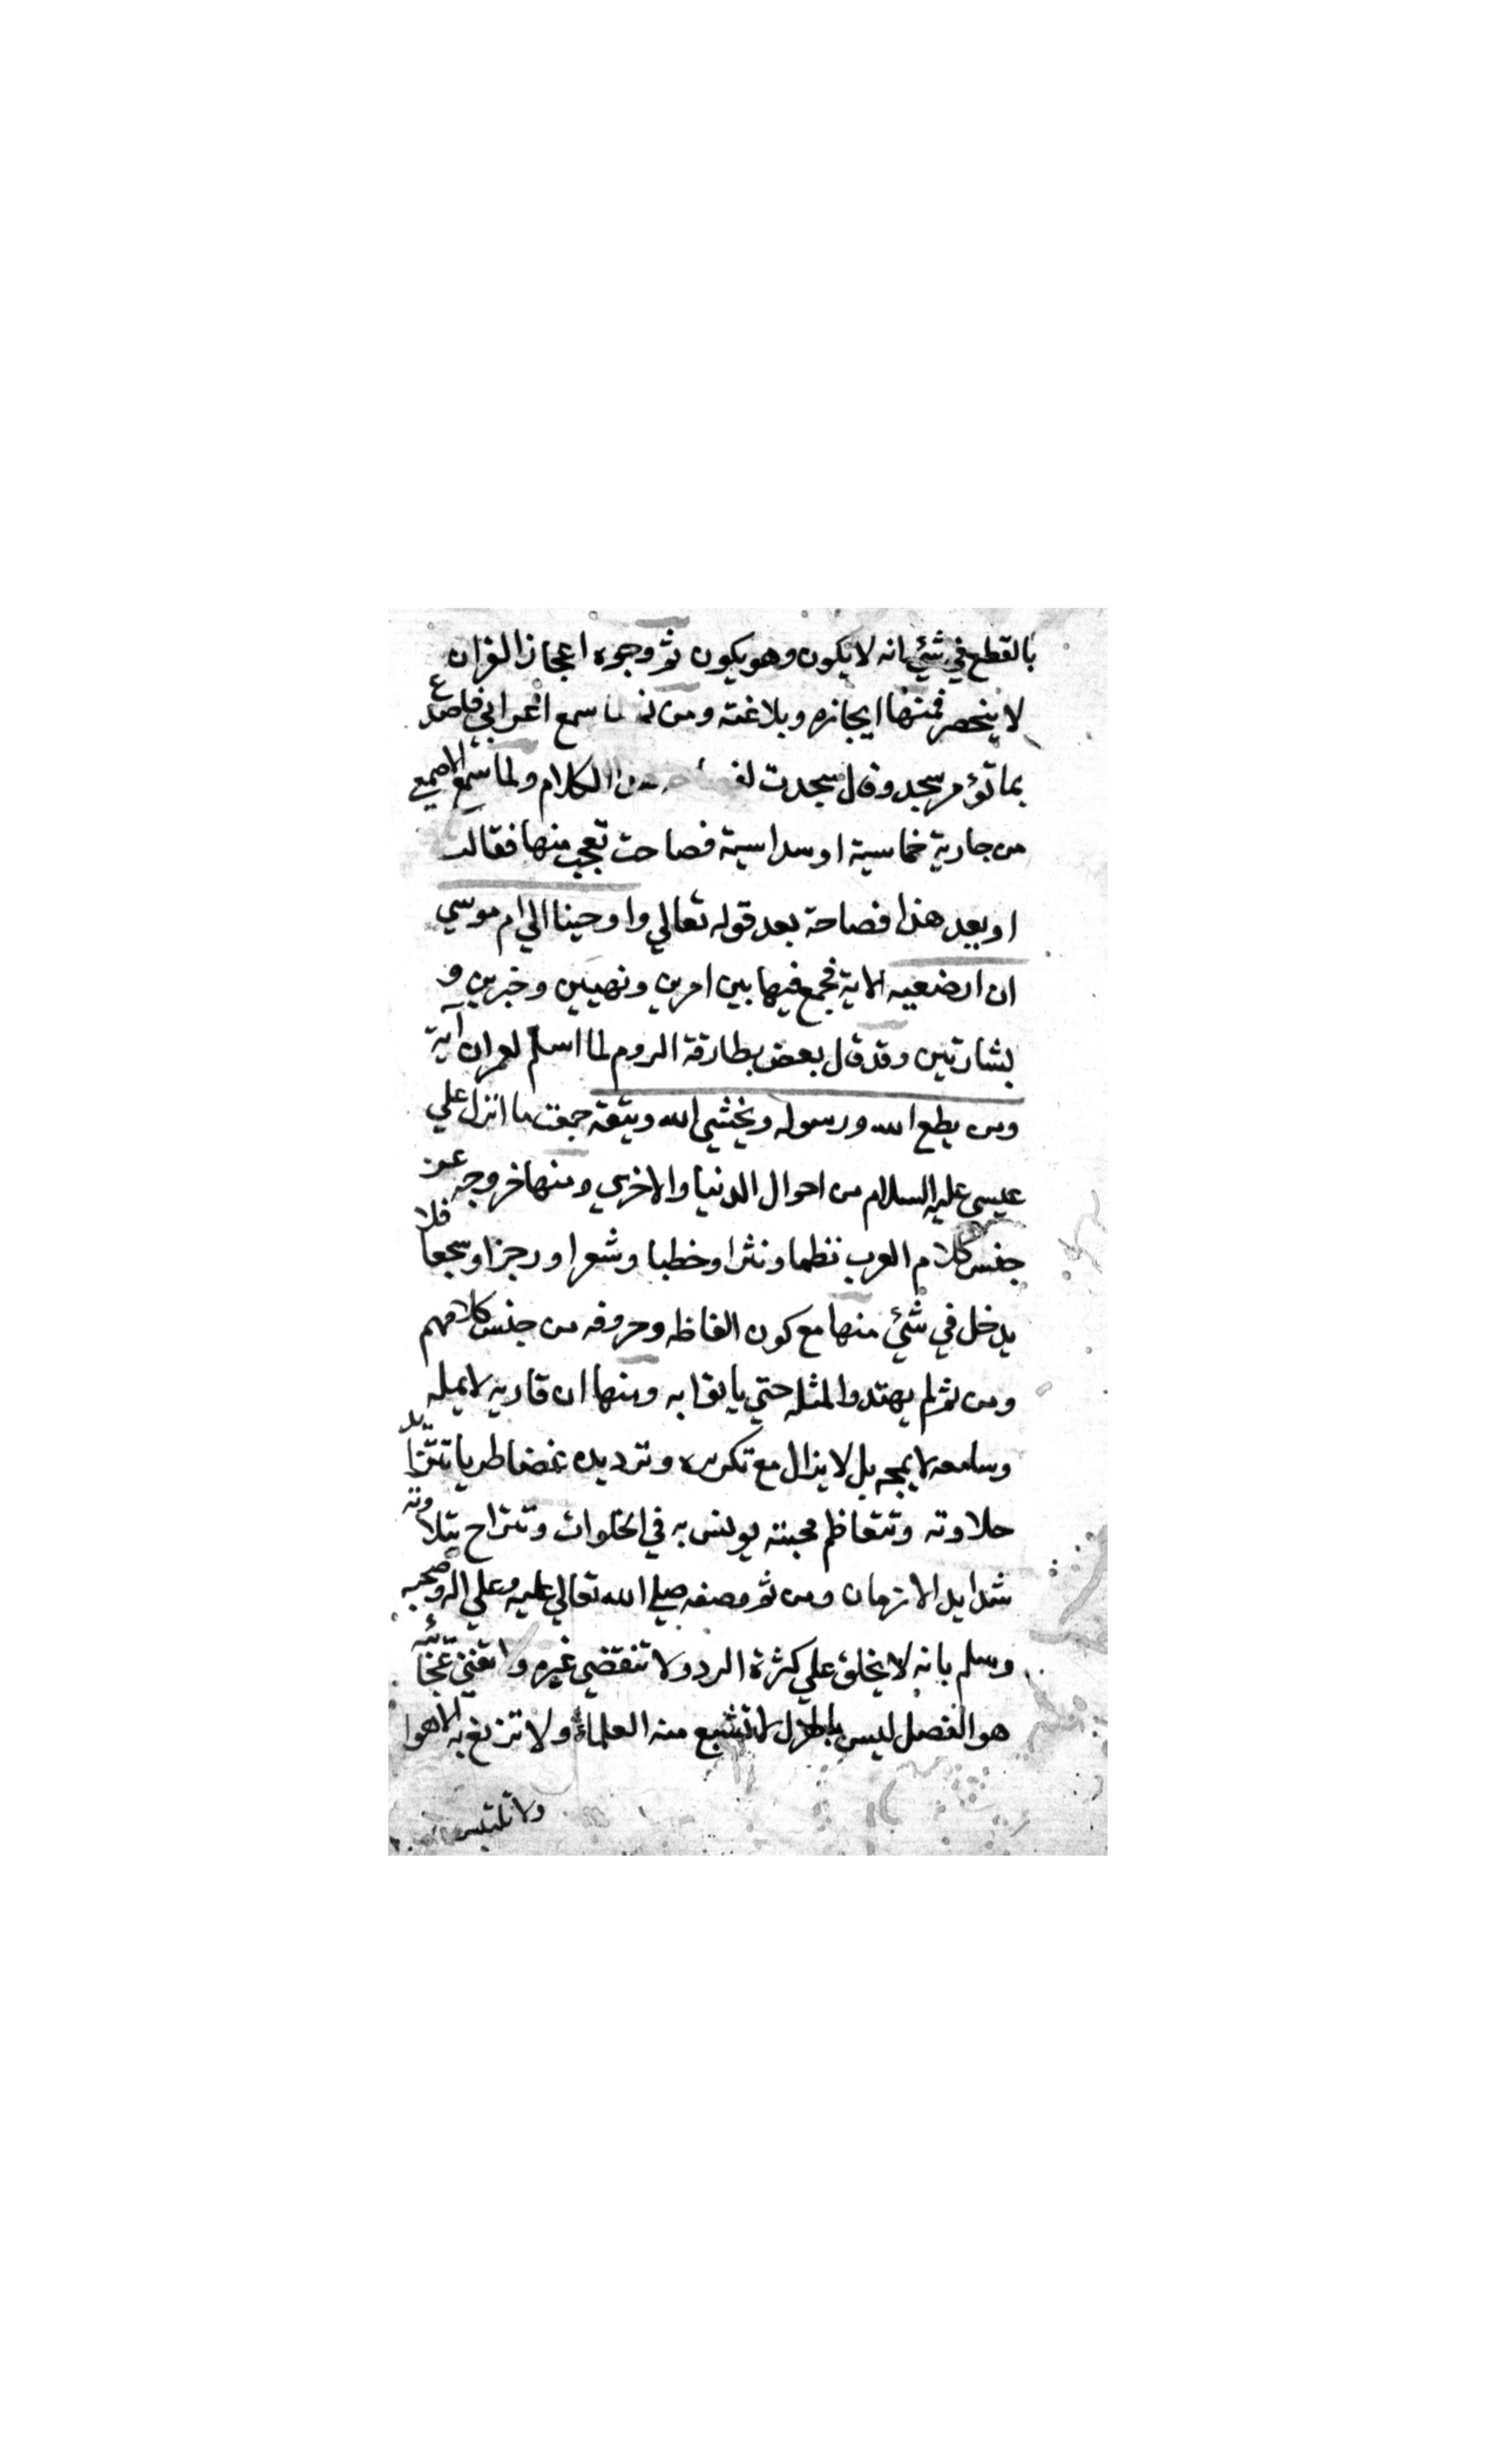 بالقطع في شيء بانه لا يكون وهو يكون ثم وجوه اعجاز القران
لا ينحصر فمنها ايجازه وبلاغته ومن ثم لما سمع اعرابي فاصدع
بما تؤمر سجد وقال سجدت الكلام ولما سمع الاصمعي
من جارية خماسية او سداسية فصاحت تعجب منها فقالت
او يعد هذا فصاحة بعد قوله تعالي واوحينا الي ام موسي
ان ارضعيه الاية فجمع فيها بين امرين ونهيين وخبرين و
بشارتين وقد قال بعض بطارقة الروم لما اسلم لعمر ان آية
ومن يطع الله ورسوله ويخشي الله ويتقه جمعت ما انزل علي
عيسي عليه السلام من احوال الدنيا والاخري ومنها خروجه عن
جنس كلام العرب نظما ونثرا وخطبا وشعرا ورجزا وسجعا فلا
يدخل في شئ منها مع كون الفاظه وحروفه من جنس كلامهم
ومن ثم لم يهتدوا لمثله حتي ياتوا به ومنها ان قاريه لا يمله
وسامعه لا يمجه بل لا يزال مع تكريره وترديده غضا طريا تتزايد
حلاوته وتتعاظم محبته يونس به في الخلوات وتتراح بتلاوته
شدايد الازمان ومن ثم وصفه صلي الله تعالي عليه وعلي اله وصحبه
وسلم بانه لا يخلق علي كثرة الرد ولا تنقضي عبره ولا تفني عجائبه
هو الفصل ليس بالهزل لا تشبع منه العلماء ولا تزيغ به الاهوا
ولا تلتبس